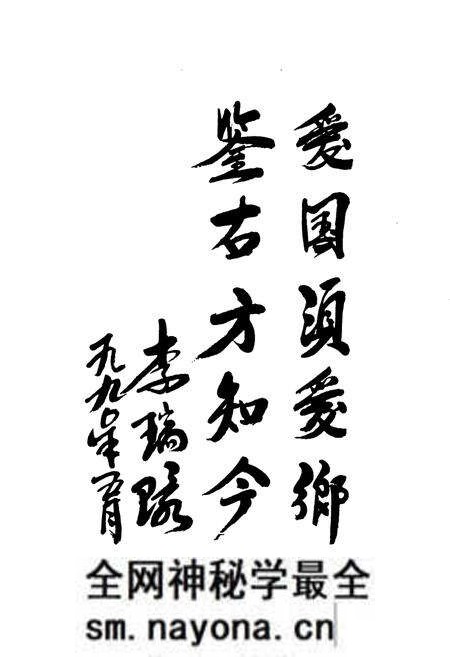 爱国须爱鄉
鉴古方知今
李瑞环
一九九〇年五月
全网神秘学最全
sm.nayona.cn